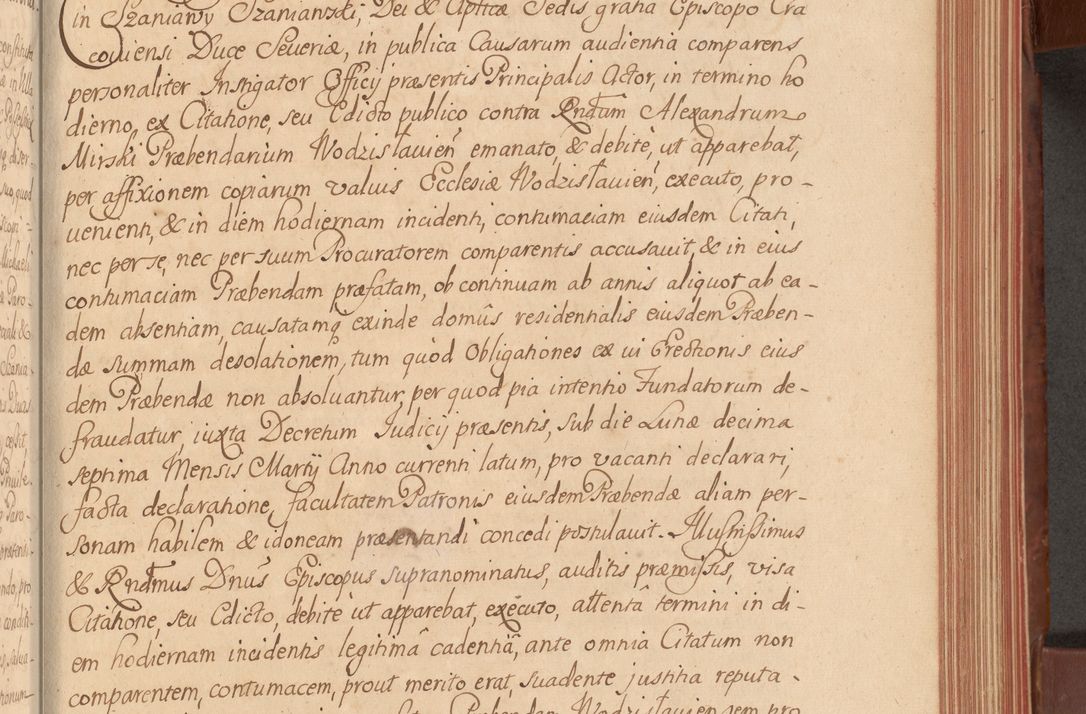 in Szaniawy Szaniawski, Dei & Apticæ Sedis gratia Episcopo Cra
coviensi Duce Severiæ, in publica Causarum audientia comparens
personaliter Instigator Officij præsentis Principalis Actor, in termino ho
dierno, ex Citatione, seu Edicto publico contra Rndum Alexandrum
Mirski Præbendarium Wodzislavien emanato, & debite, ut apparebat,
per affixionem copiarum valvis Ecclesiæ Wodzislavien, executo, pro-
venienti, & in diem hodiernam incidenti, contumaciam eiusdem Citati,
nec per se, nec per suum Procuratorem comparentis accusavit, & in eius
contumaciam Præbendam præfatam, ob continuam ab annis aliquot ab ea-
dem absentiam, causatamq exinde domûs residentialis eiusdem Præben-
dæ summam desolationem, tum quòd Obligationes ex vi Erectionis eius
dem Præbendæ non absolvantur, per quod pia intentio Fundatorum de-
fraudatur, iuxta Decretum Iudicij præsentis, sub die Lunæ decima
septima Mensis Martij Anno currenti latum, pro vacanti declarari,
facta declaratione, facultatem Patronis eiusdem Præbendæ aliam per-
sonam habilem & idoneam præsentandi concedi postulavit. Illustrissimus
& Rndmus Dnus Episcopus supranominatus, auditis præmissis, visa
Citatione, seu Edicto, debite ut apparebat, executo, attentâ termini in di-
em hodiernam incidentis legitimâ cadentiâ, ante omnia Citatum non
comparentem, contumacem, prout merito erat, suadente justitia reputa-
Wodzislaviensem pro